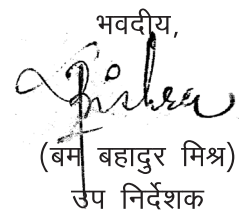 भवदीय,
(बम बहादुर मिश्र)
उप निर्देशक